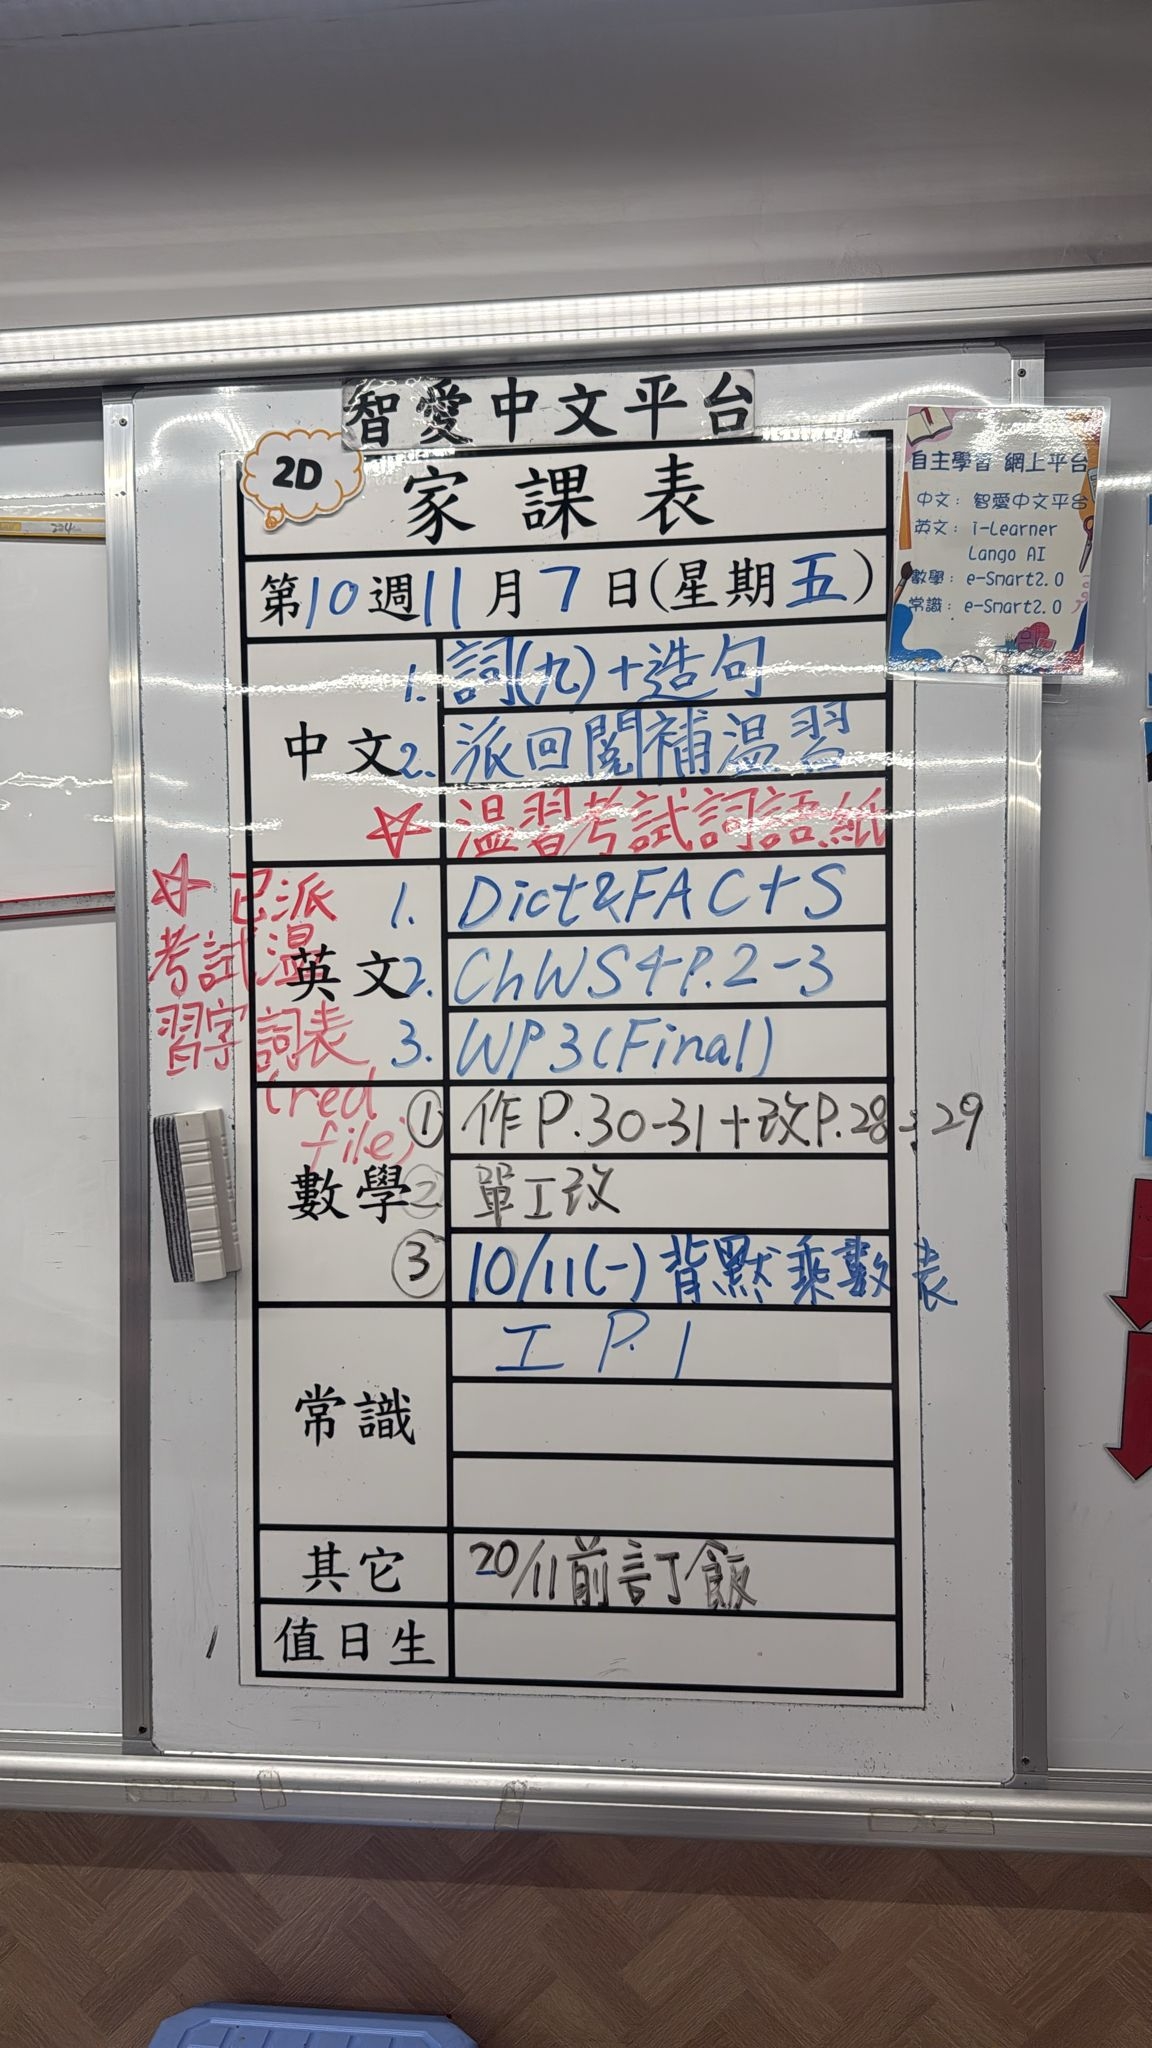 智愛中文平台
2D
家課表
第10週11月7日(星期五)
中文
1. 詞(九)+造句
2. 派回閱補温習
☆ 温習考試詞語紙
☆ 已派
考試温
習字詞表
(red
file)
英文
1. Dict&FACTS
2. ChWS4P.2-3
3. WP3(Final)
數學
① 作P.30-31+改P.28,29
② 單工改
③ 10/11(一)背默乘數表
常識
工 P.1
其它
20/11前訂飯
值日生
自主學習 網上平台
中文: 智愛中文平台
英文: i-Learner
Lango AI
數學: e-Smart2.0
常識: e-Smart2.0